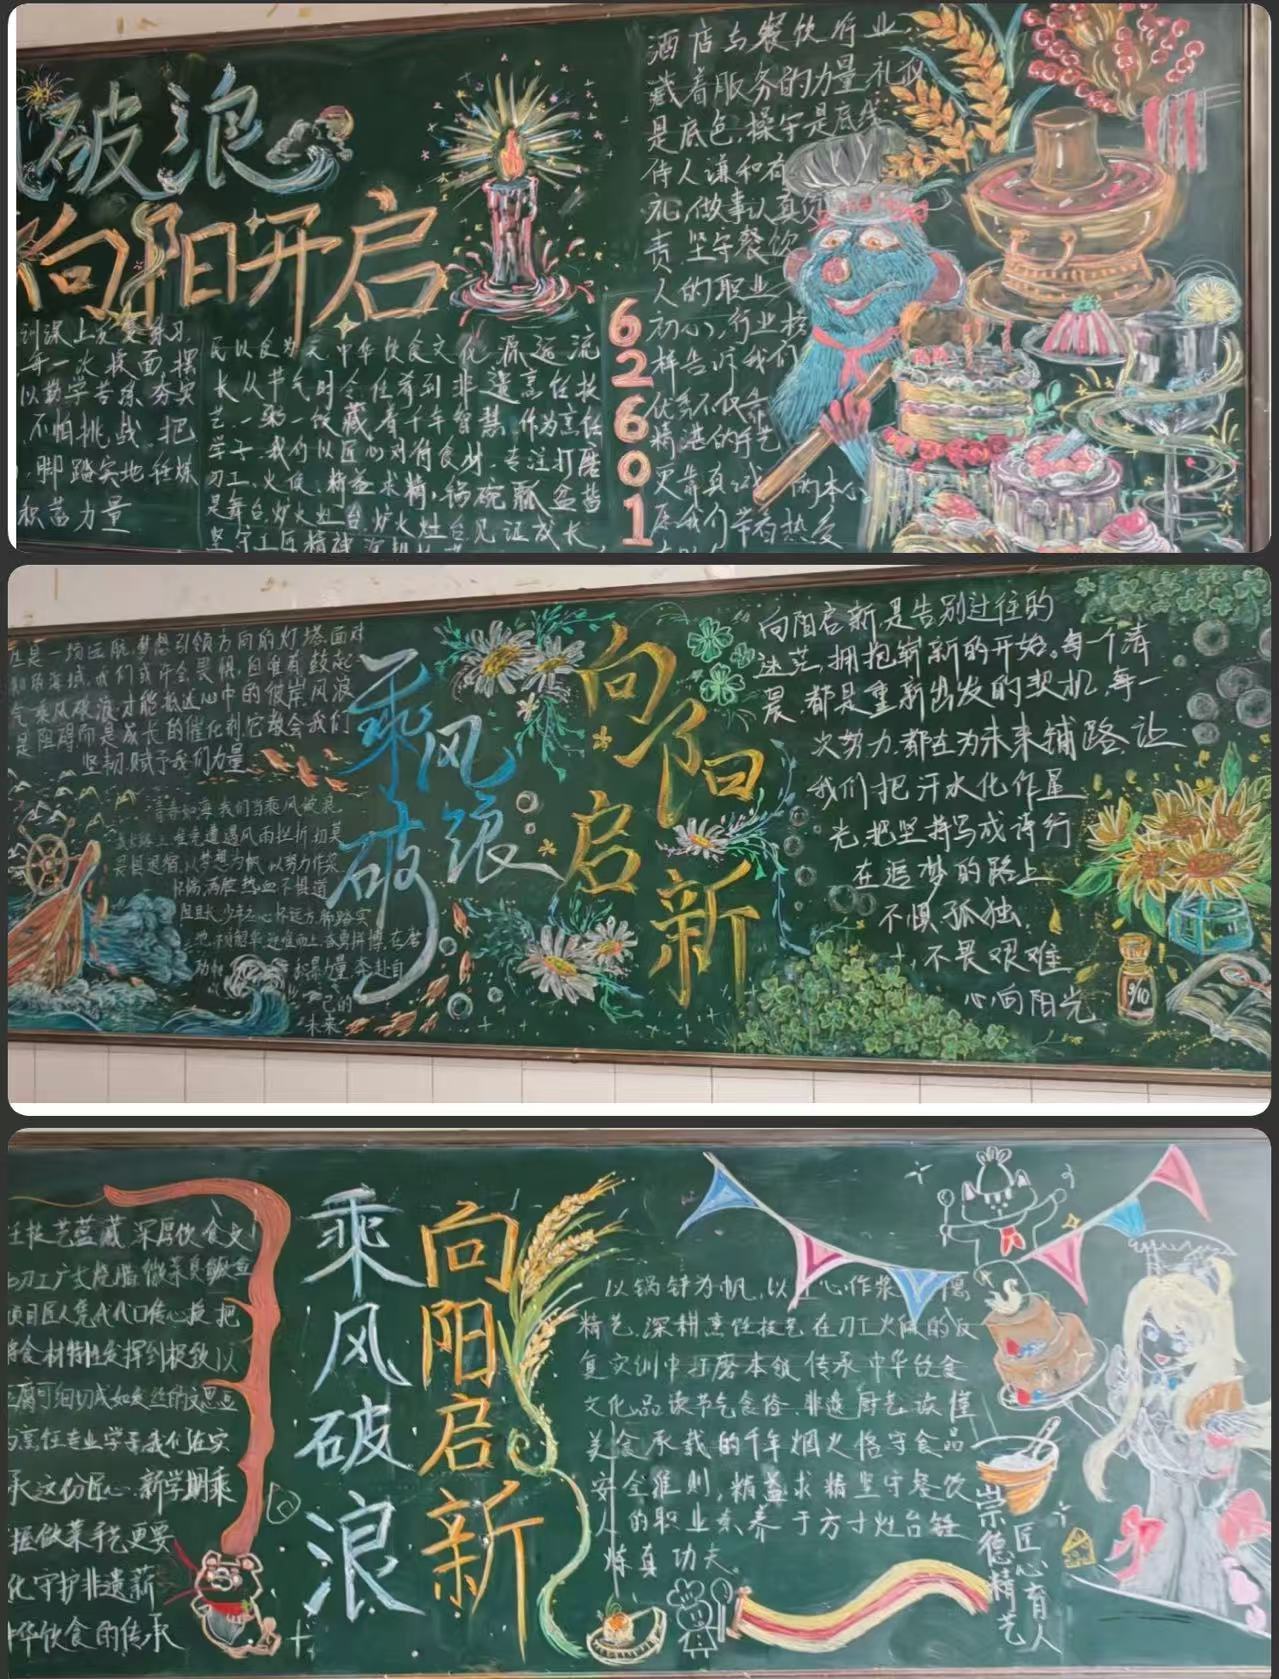 破浪
向阳开启
训课上反复练习
每一次揉面,摆
以勤学苦练夯实
不怕挑战 把
脚踏实地锤炼
积蓄力量
民以食为天,中华饮食文化 源远流
长从节气时令佳肴到非遗烹饪技
艺一粥一饭藏着千年智慧,作为烹饪
学子,我们以匠心对待食材,专注打磨
刀工、火候,精益求精,锅碗瓢盆皆
是舞台,炉火灶台炉火灶台见证成长,
坚守工匠精神
62601
酒店与餐饮行业,
藏着服务的力量礼仪
是底色,操守是底线
待人谦和有
礼,做事认真负
责 坚守餐饮
人的职业
初心,行业榜
样告诉我们
优秀不仅靠
精湛的手艺
更靠真诚 的本心
愿我们带着热爱
是一场远航,梦想引领方向的灯塔面对
海域,我们或许会畏惧,但唯有鼓起
乘风破浪才能抵达心中的彼岸风浪
是阻碍而是成长的催化剂它教会我们
坚韧,赋予我们力量
青春如海 我们当乘风破浪
难免遭遇风雨挫折,切莫
畏惧退宿,以梦想为帆,以努力作桨
怀揣满腔热血不惧道
阻且长,少年之心,怀远方脚踏实
地
积累力量 奔赴自
己的
未来
乘风
破浪
向阳
启新
向阳启新是告别过往的
迷茫,拥抱崭新的开始。每一个清
晨,都是重新出发的契机,每一
次努力,都在为未来铺路,让
我们把汗水化作星
光,把坚持写成诗行
在追梦的路上
不惧孤独,
不畏艰难
心向阳光
9/10
饪技艺蕴藏 深厚饮食文
项目匠人凭代代口传心授,把
食材特性发挥到极致以
腐可细切成如发丝的文思豆
烹饪专业学子我们在实
承这份匠心,新学期乘
握做菜手艺更要
化守护非遗薪
中华饮食的传承
乘风破浪
向阳启新
以锅铲为帆,以 心作桨 德
精艺,深耕烹饪技艺 在刀工火候的反
复实训中打磨本领 传承 中华饮食
文化,品读节气食俗、非遗厨艺,读懂
美食承载的千年烟火恪守食品
安全准则,精益求精坚守餐饮
人的职业素养 于方寸灶台锤
炼真功夫。
崇德精艺
匠心育人